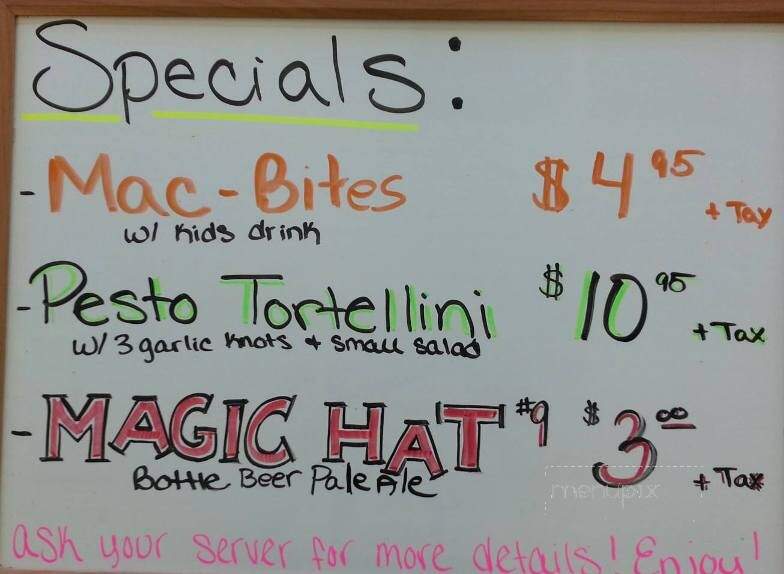 Specials:
- Mac-Bites $4.95 + Tax
w/ kids drink
- Pesto Tortellini $10.95 + Tax
w/ 3 garlic knots + small salad
- MAGIC HAT #9 $3.00 + Tax
Bottle Beer Pale Ale
menupix
ask your server for more details! Enjoy!